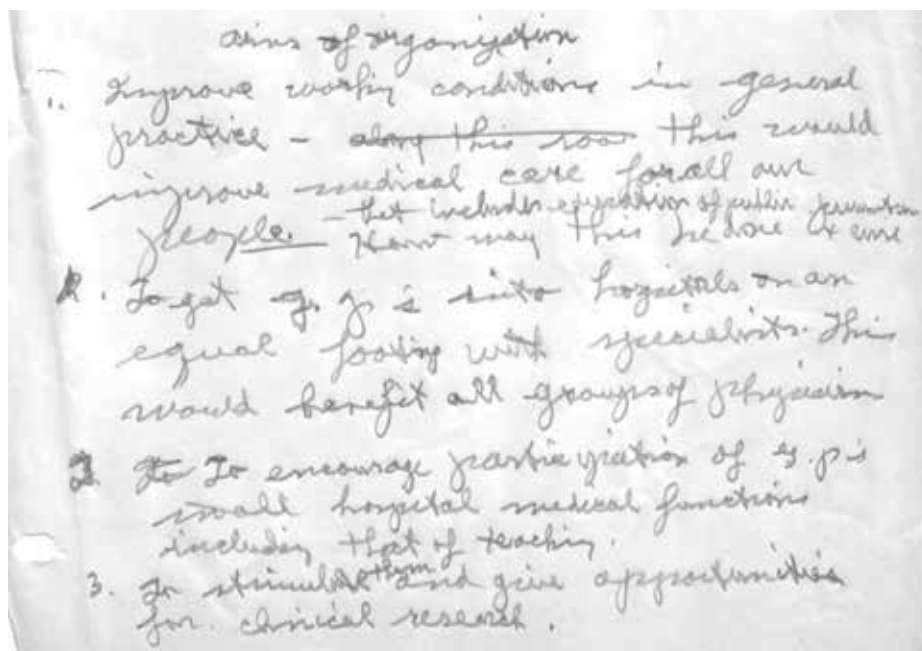 aims of organization
1. Improve working conditions in general
practice - along this road this would
improve medical care for all our
people. - that includes education of public prevention
How may this be done & cure
To get g. p's into hospitals on an
equal footing with specialists. This
would benefit all groups of physician
2. To To encourage participation of g.p's
in all hospital medical functions
including that of teaching.
3. To stimulate them and give opportunities
for clinical research.